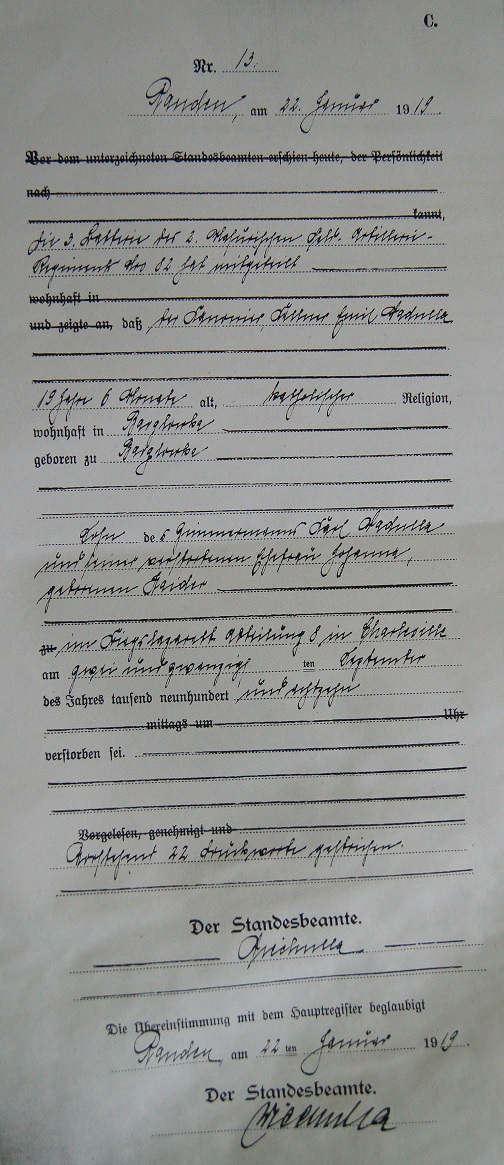 C.
Nr. 13.
Randen, am 22. Januar 1919.
Vor dem unterzeichneten Standesbeamten erschien heute, der Persönlichkeit
nach
kannt,
die 3. Batterie des 2. Masurischen Feld-Artillerie-
Regiments Nro 82 hat mitgeteilt
wohnhaft in
und zeigte an, daß der Kanonier, Kellner Emil
19 Jahre 6 Monate alt, katholischer Religion,
wohnhaft in Barglowka
geboren zu Barglowka
Sohn des Zimmermanns Karl
und seiner verstorbenen Ehefrau Johanna,
geborenen Kaider
zu im Kriegslazarett Abteilung 8 in Charleville
am zwei und zwanzigs ten September
des Jahres tausend neunhundert und achtzehn
mittags um Uhr
verstorben sei.
Vorgelesen, genehmigt und
Vorstehend 22 Druckworte gestrichen.
Der Standesbeamte.
Die Übereinstimmung mit dem Hauptregister beglaubigt
Randen, am 22 ten Januar 1919.
Der Standesbeamte.